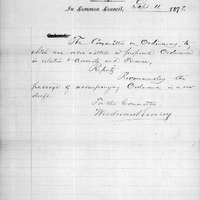 In Common Council, Sept 11, 1878
The Committee on Ordinances, to
which was recommitted a proposed Ordinance
in relation to Accounts and Finance,
Report,
Recommending the
passage of accompanying Ordinance in a new
draft.
For the Committee,